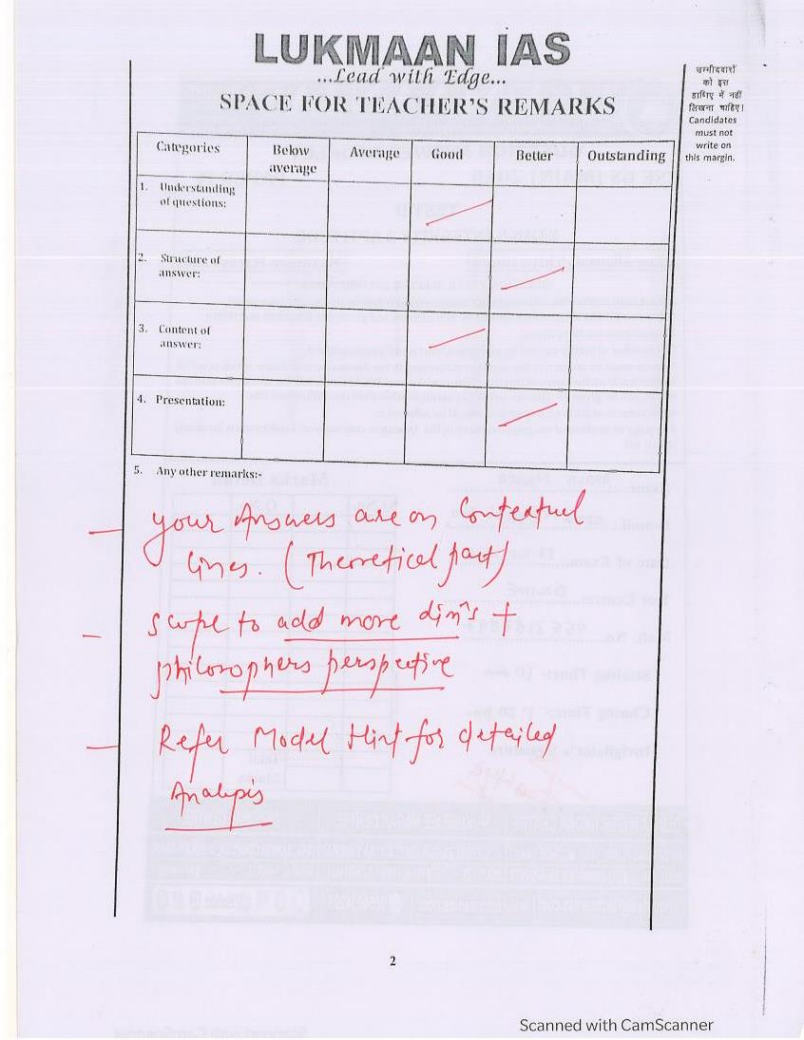 LUKMAAN IAS
...Lead with Edge...
SPACE FOR TEACHER'S REMARKS
उम्मीदवारों
को इस
हाशिए में नहीं
लिखना चाहिए।
Candidates
must not
write on
this margin.
Categories Below average Average Good Better Outstanding
1. Understanding
of questions:
2. Structure of
answer:
3. Content of
answer:
4. Presentation:
5. Any other remarks:-
— your Answers are on Contextual
lines. (Theoretical part)
— scope to add more dimn's +
philosophers perspective
— Refer Model Hint for detailed
Analysis
2
Scanned with CamScanner